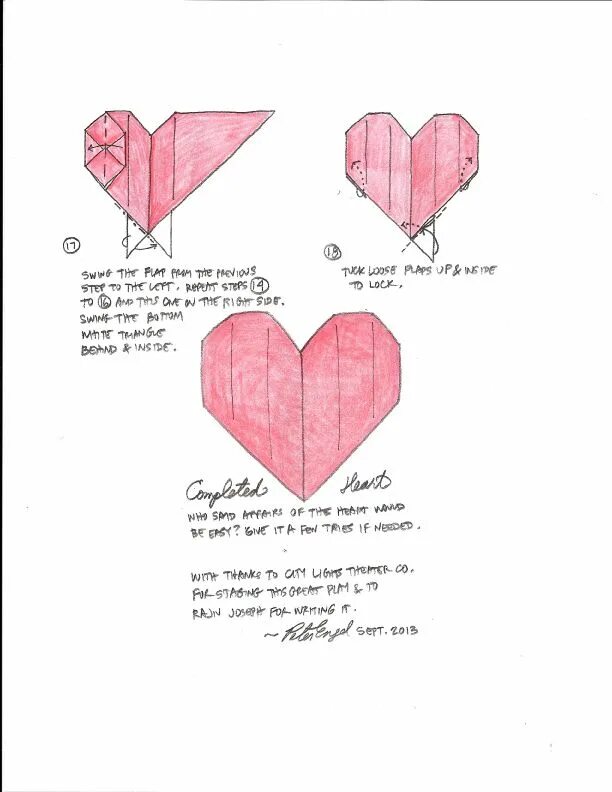 17
SWING THE FLAP FROM THE PREVIOUS
STEP TO THE LEFT. REPEAT STEPS 14
TO 16 AND THIS ONE ON THE RIGHT SIDE.
SWING THE BOTTOM
WHITE TRIANGLE
BEHIND & INSIDE.
18
TUCK LOOSE FLAPS UP & INSIDE
TO LOCK.
Completed Heart
WHO SAID AFFAIRS OF THE HEART WOULD
BE EASY? GIVE IT A FEW TRIES IF NEEDED.
WITH THANKS TO CITY LIGHTS THEATER CO.
FOR STAGING THIS GREAT PLAY & TO
RAJIV JOSEPH FOR WRITING IT.
~ Peter Engel SEPT. 2013